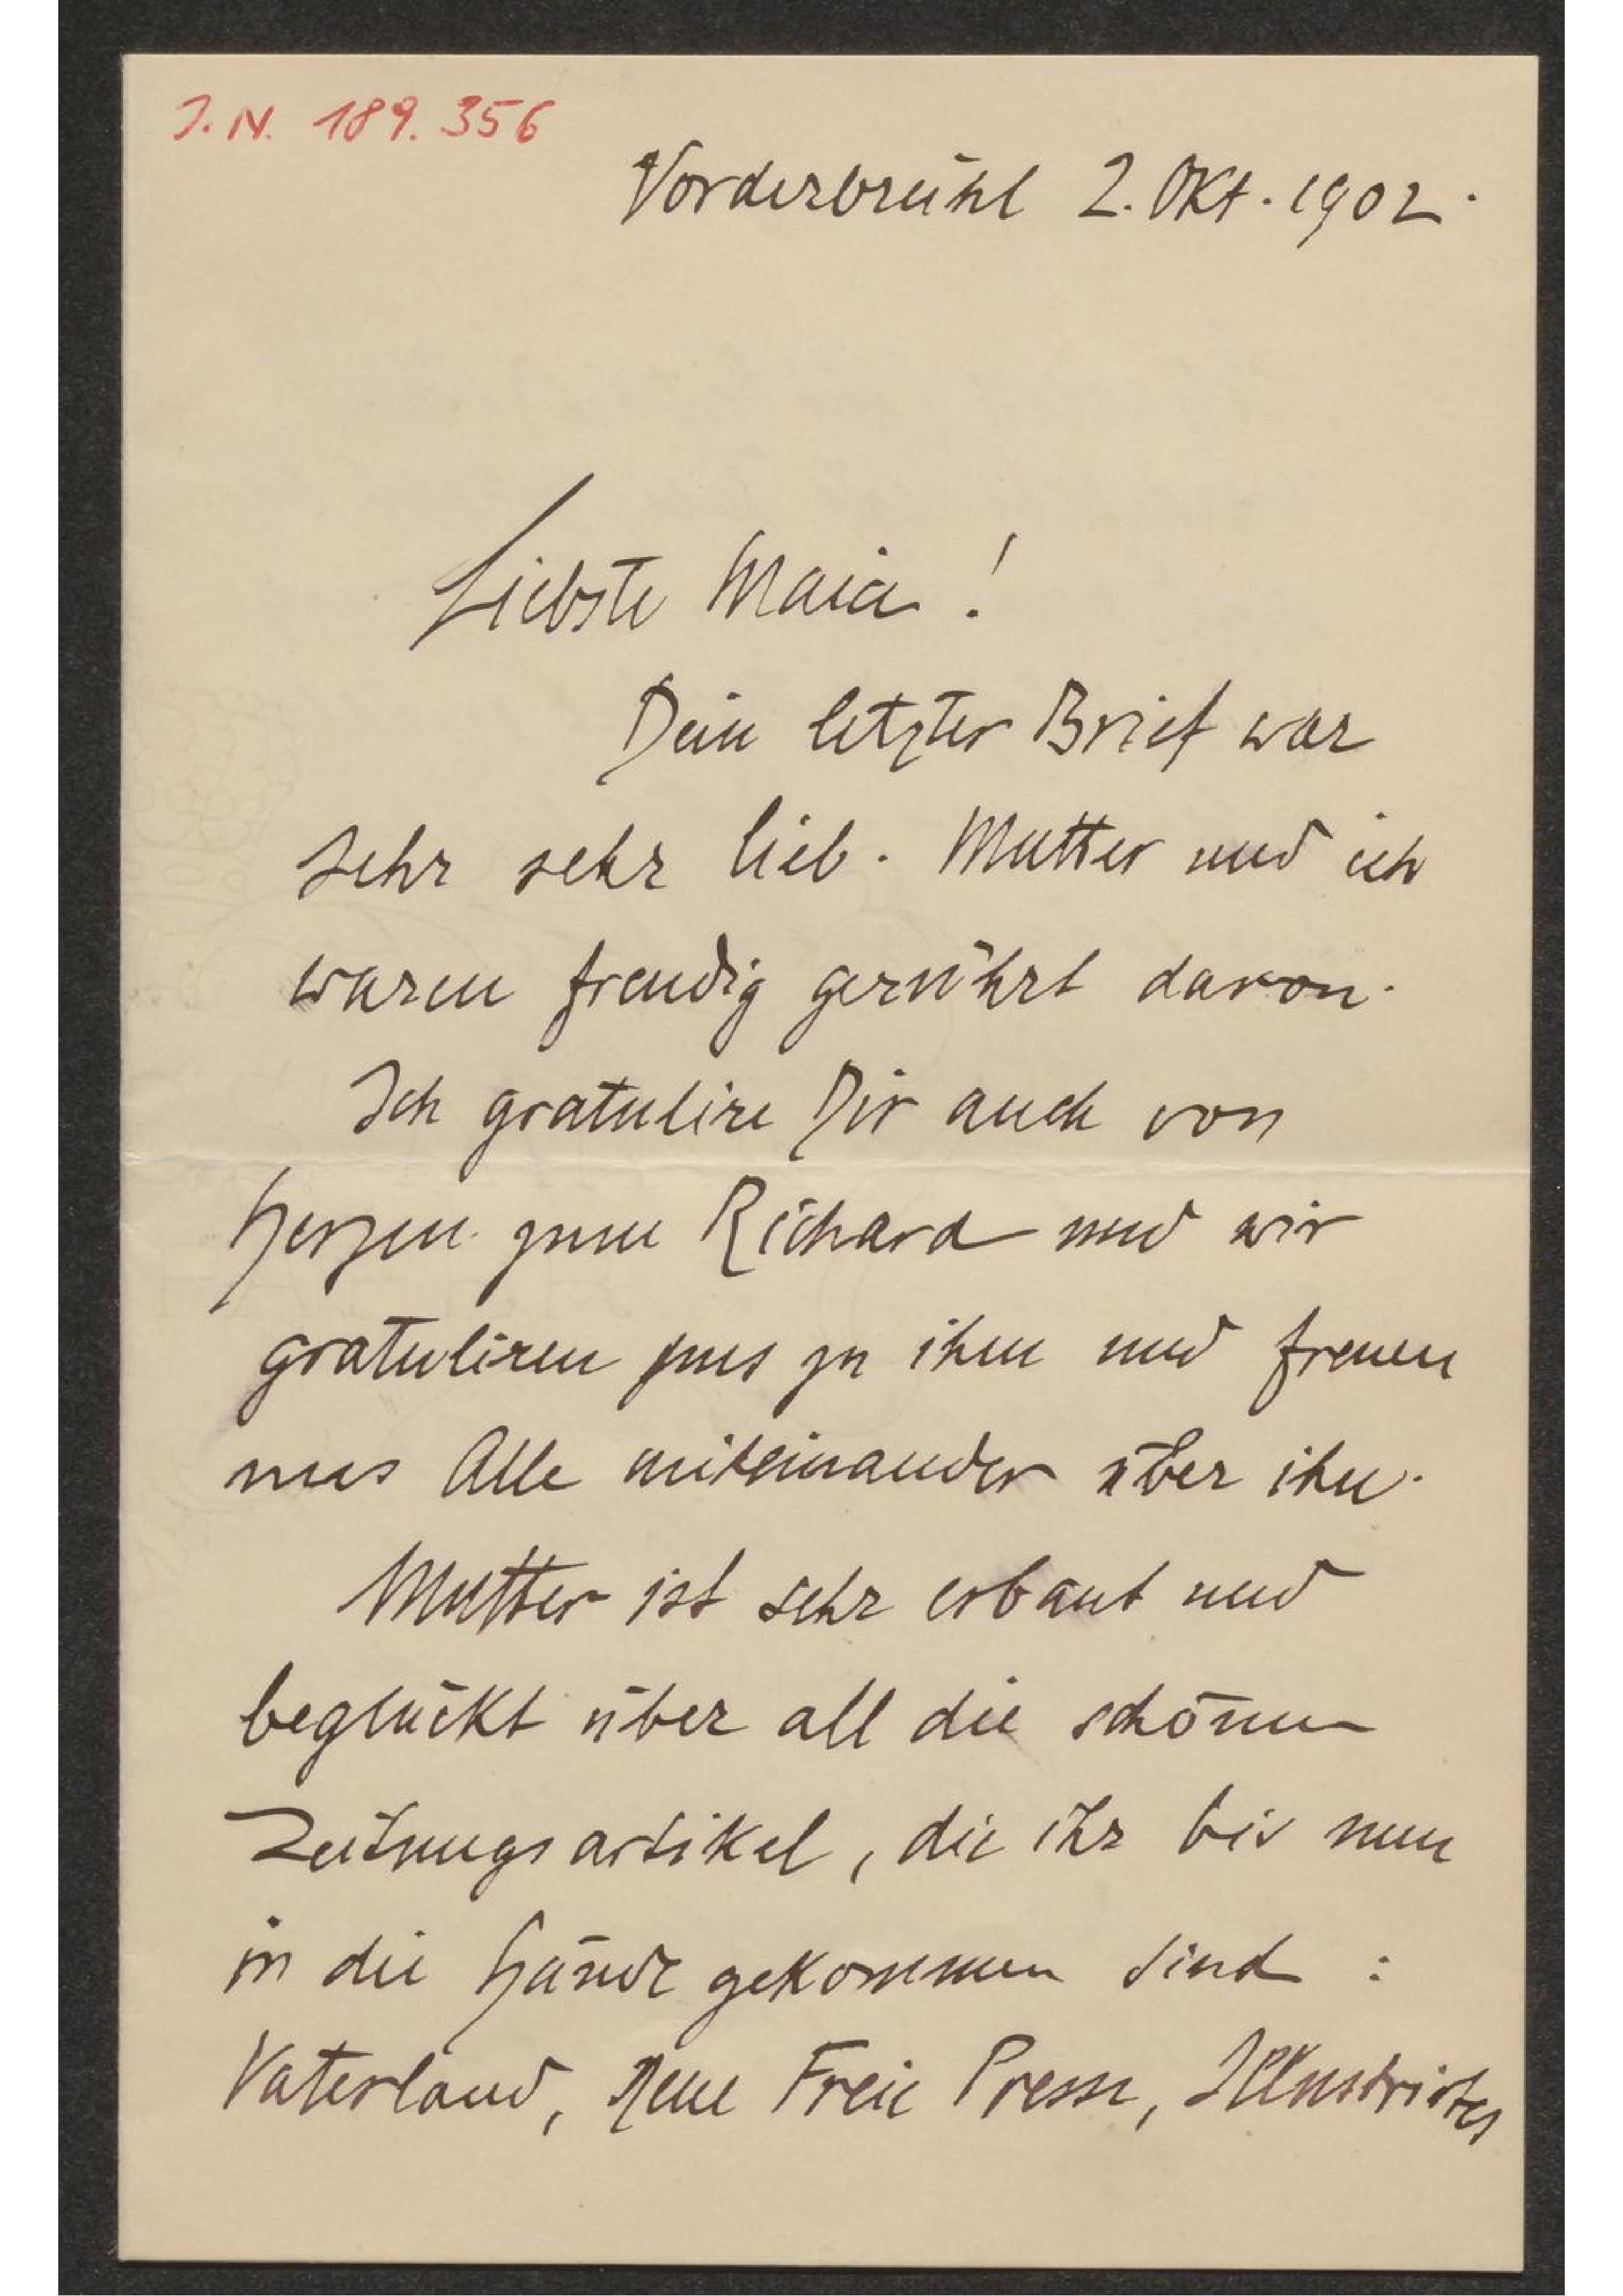 J. N. 189.356
Vorderbrühl 2. Okt. 1902.
Liebste Maia!
Dein letzter Brief war
sehr sehr lieb. Mutter und ich
waren freudig gerührt davon.
Ich gratulire Dir auch von
Herzen zum Richard und wir
gratuliren uns zu ihm und freuen
uns Alle miteinander über ihn.
Mutter ist sehr erbaut und
beglückt über all die schönen
Zeitungsartikel, die ihr bis nun
in die Hände gekommen sind :
Vaterland, Neue Freie Presse, Illustrirtes